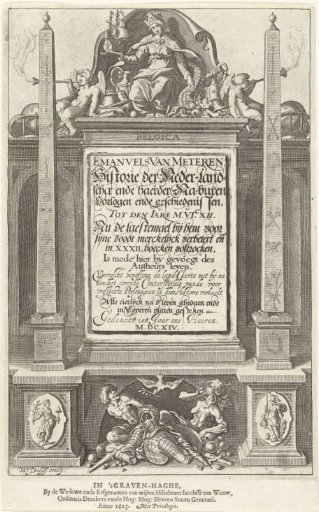 BELGICA
EMANVELS VAN METEREN
Historie der Neder-land-
scher ende haerder Na-buren
Oorlogen ende geschiedenissen.
TOT DEN IARE M.VI.XII.
Nu de laestemael by hem voor
syne doodt merckelyck verbetert en
in XXXII. boecken voltrocken.
Is mede hier by gevoegt des
Autheurs leven.
Alle cierlyck na 't leven
M.DC.XIV.
IN 's GRAVEN-HAGHE,
By de Weduwe ende Erfgenamen van wijlen Hillebrant Iacobssz van Wouw,
Ordinaris Druckers vande Hog: Mog: Heeren Staten Generael.
Anno 1623. Met Privilegie.